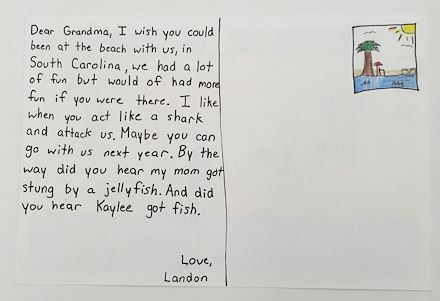 Dear Grandma, I wish you could
been at the beach with us, in
South Carolina, we had a lot
of fun but would of had more
fun if you were there. I like
when you act like a shark
and attack us. Maybe you can
go with us next year. By the
way did you hear my mom got
stung by a jellyfish. And did
you hear Kaylee got fish.
Love,
Landon